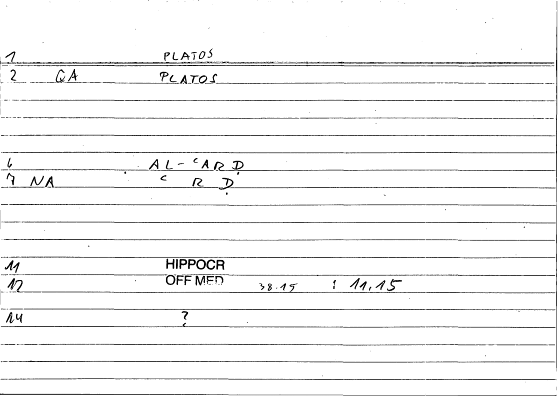 1 PLATOS
2 GA PLATOS
6 AL-CARD.
7 NA C R D.
11 HIPPOCR
12 OFF MED 38.15 : 11.15
14 ?